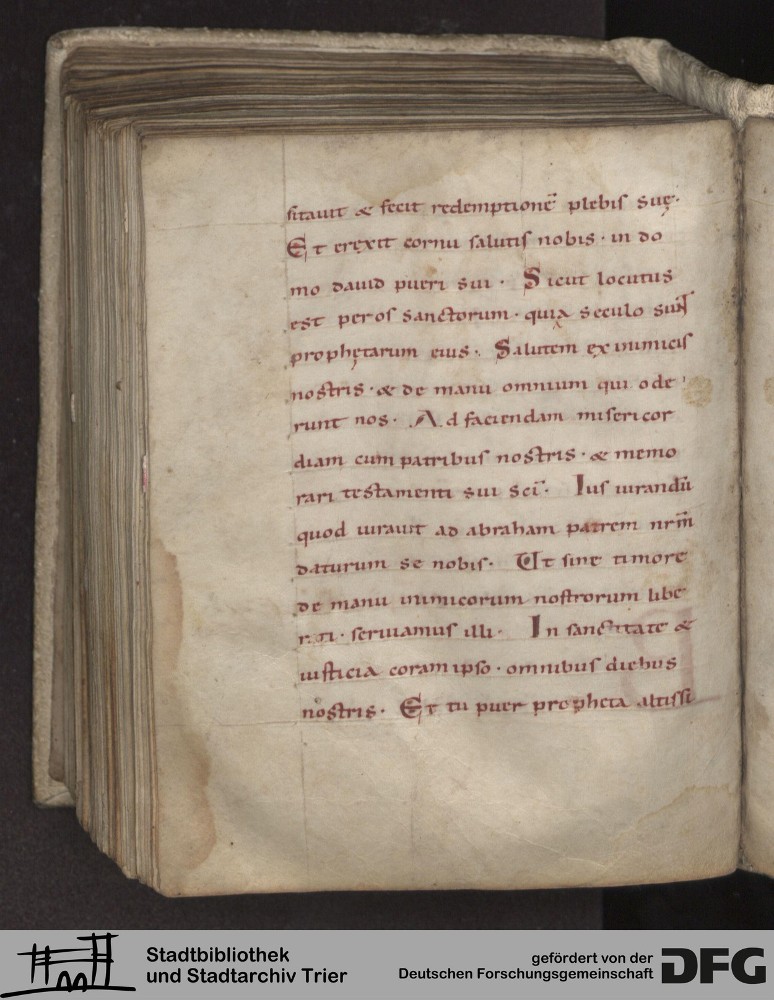 sitauit & fecit redemptionē plebis suę·
Et erexit cornu salutis nobis· in do
mo dauid pueri sui· Sicut locutus
est per os sanctorum· quia seculo sunt
prophętarum eius· Salutem ex inimicis
nostris· & de manu omnium qui ode
runt nos· Ad faciendam misericor
diam cum patribus nostris· & memo
rari testamenti sui sci̅· Ius iurandū
quod iurauit ad abraham patrem nr̅m
daturum se nobis· Ut sine timore
de manu inimicorum nostrorum libe
rati· seruiamus illi· In sanctitate &
iusticia coram ipso· omnibus diebus
nostris· Et tu puer propheta altissi
Stadtbibliothek
und Stadtarchiv Trier
gefördert von der
Deutschen Forschungsgemeinschaft
DFG